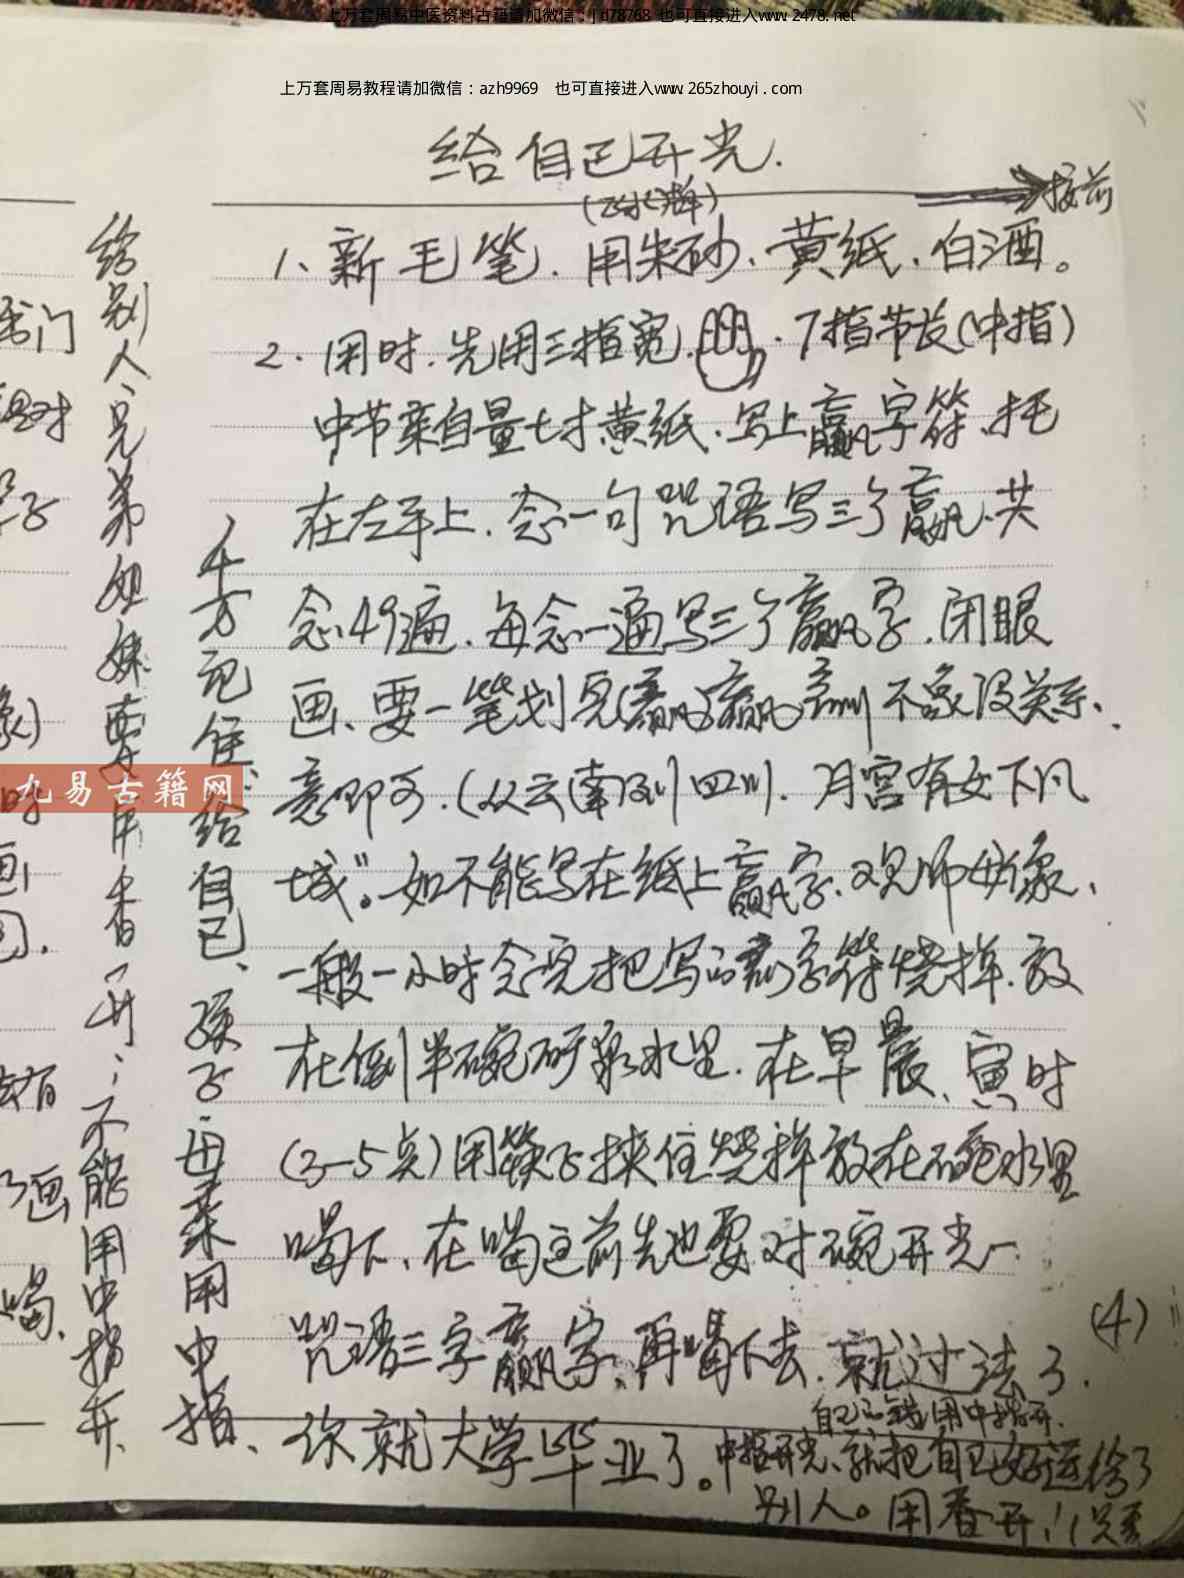 上万套周易中医资料古籍请加微信：jd78768 也可直接进入www.2478.net
上万套周易教程请加微信：azh9969 也可直接进入www.265zhouyi.com
给自己开光.
接前
1、新毛笔.用朱砂、黄纸、白酒。
2.用时.先用三指宽.7指节长(中指)
中节来自量七寸黄纸.写上赢字符.托
在左手上.念一句咒语写三个赢.共
念49遍.每念一遍写三个赢字.闭眼
画、要一笔划完(赢)赢赢 不象没关系、
意即可.(从云南到四川.月宫有女下凡
城"。如不能写在纸上赢字.观师母像、
一般一小时念完把写的赢字符烧掉.放
在倒半碗矿泉水里.在早晨、寅时
(3-5点)用筷子挟住烧掉放在碗水里
喝下、在喝之前先也要对碗开光一
咒语三字赢字、再喝下去.就过法了.
你就大学毕业了。
自己 用中指开.
中指开光、就把自己好运给了
别人。用香开
(4)
千万记住、给自己、孩子.母亲用中指、
给别人、兄弟姐妹要用香开;不能用中指开、
九易古籍网
门
象)
时
画
有
画
喝、